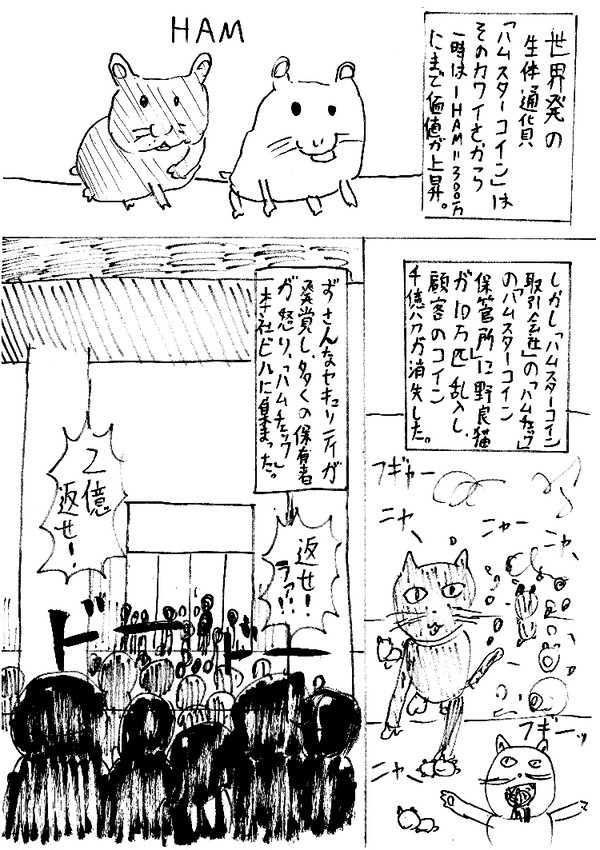 世界発の
生体通貨
「ハムスターコイン」は
そのカワイさから
一時は1HAM=300万
にまで価値が上昇。
HAM
しかし「ハムスターコイン
取引会社」の「ハムチェック」
の「ハムスターコイン
保管所」に野良猫
が10万匹乱入し、
顧客のコイン
千億ハムが消失した。
フギャー
ニャ、
ニャー
ニャ、
フギーッ
ニャ、
ずさんなセキュリティが
発覚し、多くの保有者
が怒り、「ハムチェック」
本社ビルに集まった。
返せ!
ラァ!!
2億
返せ!